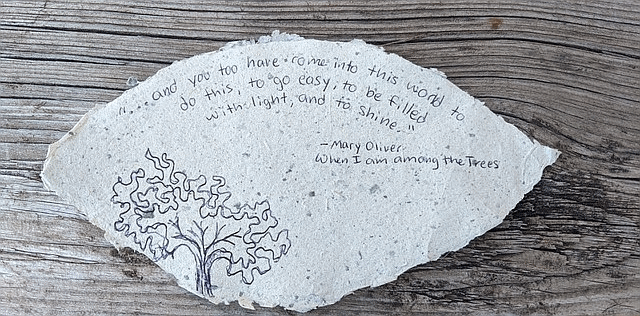 "...and you too have come into this world to
do this, to go easy, to be filled
with light, and to shine."
-Mary Oliver
When I am among the Trees